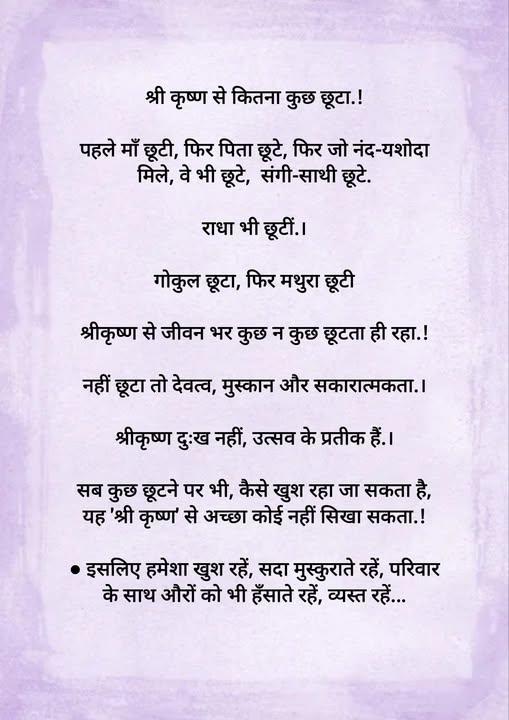 श्री कृष्ण से कितना कुछ छूटा.!
पहले माँ छूटी, फिर पिता छूटे, फिर जो नंद-यशोदा
मिले, वे भी छूटे, संगी-साथी छूटे.
राधा भी छूटीं.।
गोकुल छूटा, फिर मथुरा छूटी
श्रीकृष्ण से जीवन भर कुछ न कुछ छूटता ही रहा.!
नहीं छूटा तो देवत्व, मुस्कान और सकारात्मकता.।
श्रीकृष्ण दुःख नहीं, उत्सव के प्रतीक हैं.।
सब कुछ छूटने पर भी, कैसे खुश रहा जा सकता है,
यह 'श्री कृष्ण' से अच्छा कोई नहीं सिखा सकता.!
● इसलिए हमेशा खुश रहें, सदा मुस्कुराते रहें, परिवार
के साथ औरों को भी हँसाते रहें, व्यस्त रहें...